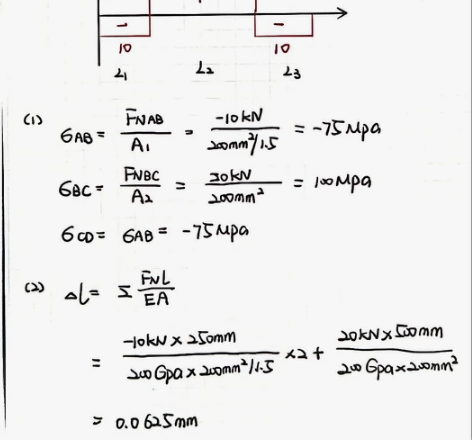 - -
10 10
L₁ L₂ L₃
(1) σAB = FNAB/A₁ = -10kN/(200mm²/1.5) = -75Mpa
σBC = FNBC/A₂ = 20kN/200mm² = 100Mpa
σCD = σAB = -75Mpa
(2) ΔL = Σ FNL/EA
= (-10kN×250mm)/(200Gpa×200mm²/1.5) ×2 + (20kN×500mm)/(200Gpa×200mm²)
= 0.0625mm